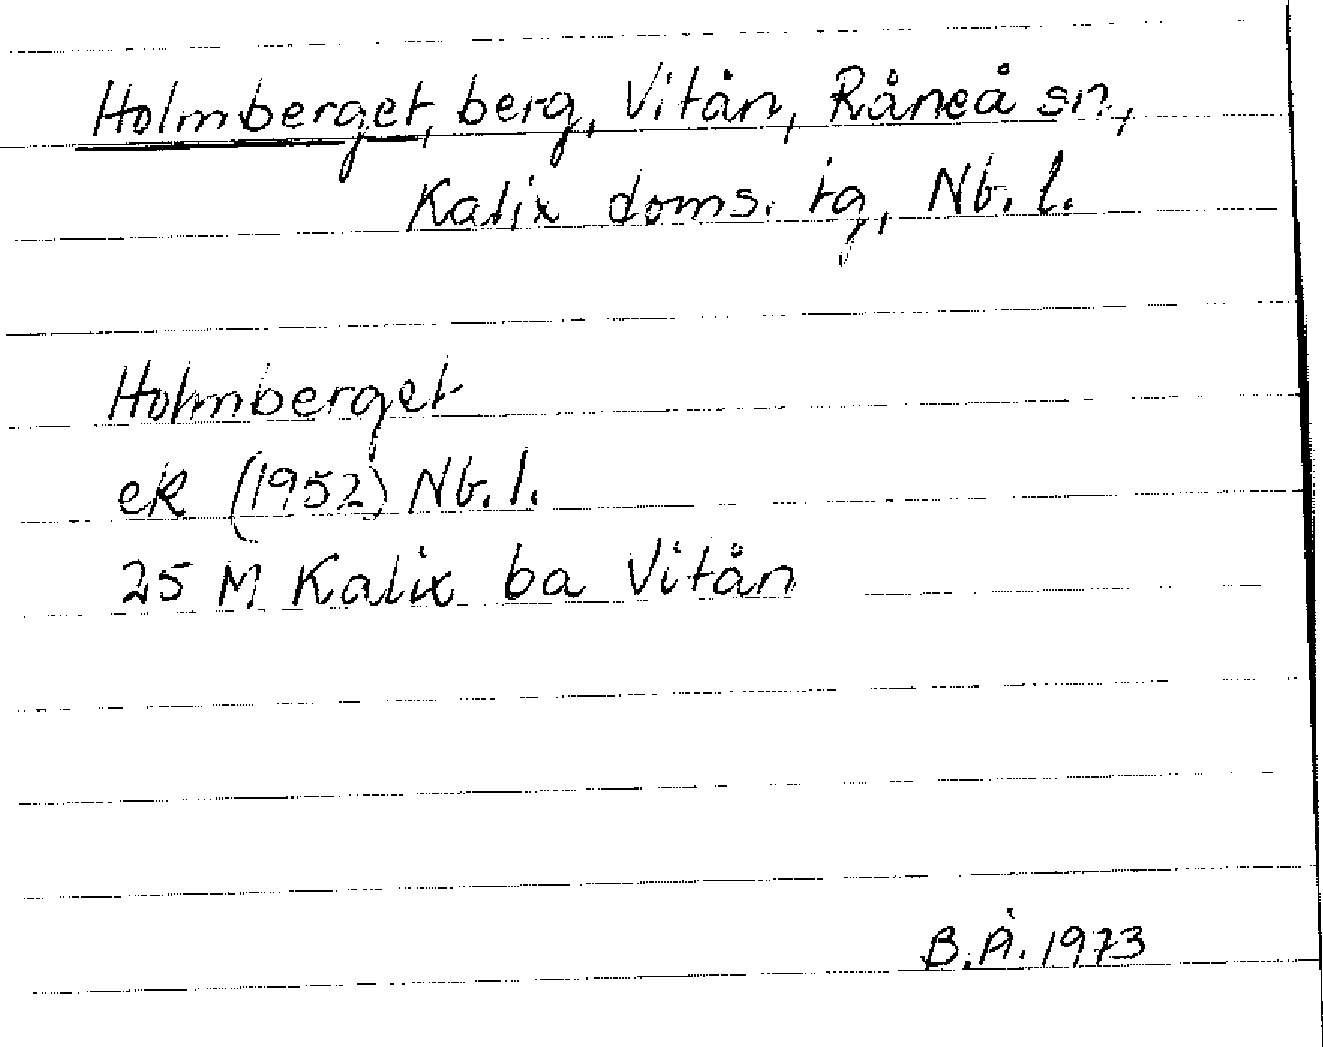 Holmberget, berg, Vitån, Råneå sn,
Kalix doms. tg, Nb. l.
Holmberget
ek (1952) Nb. l.
25 M Kalix ba Vitån
B.Å. 1973